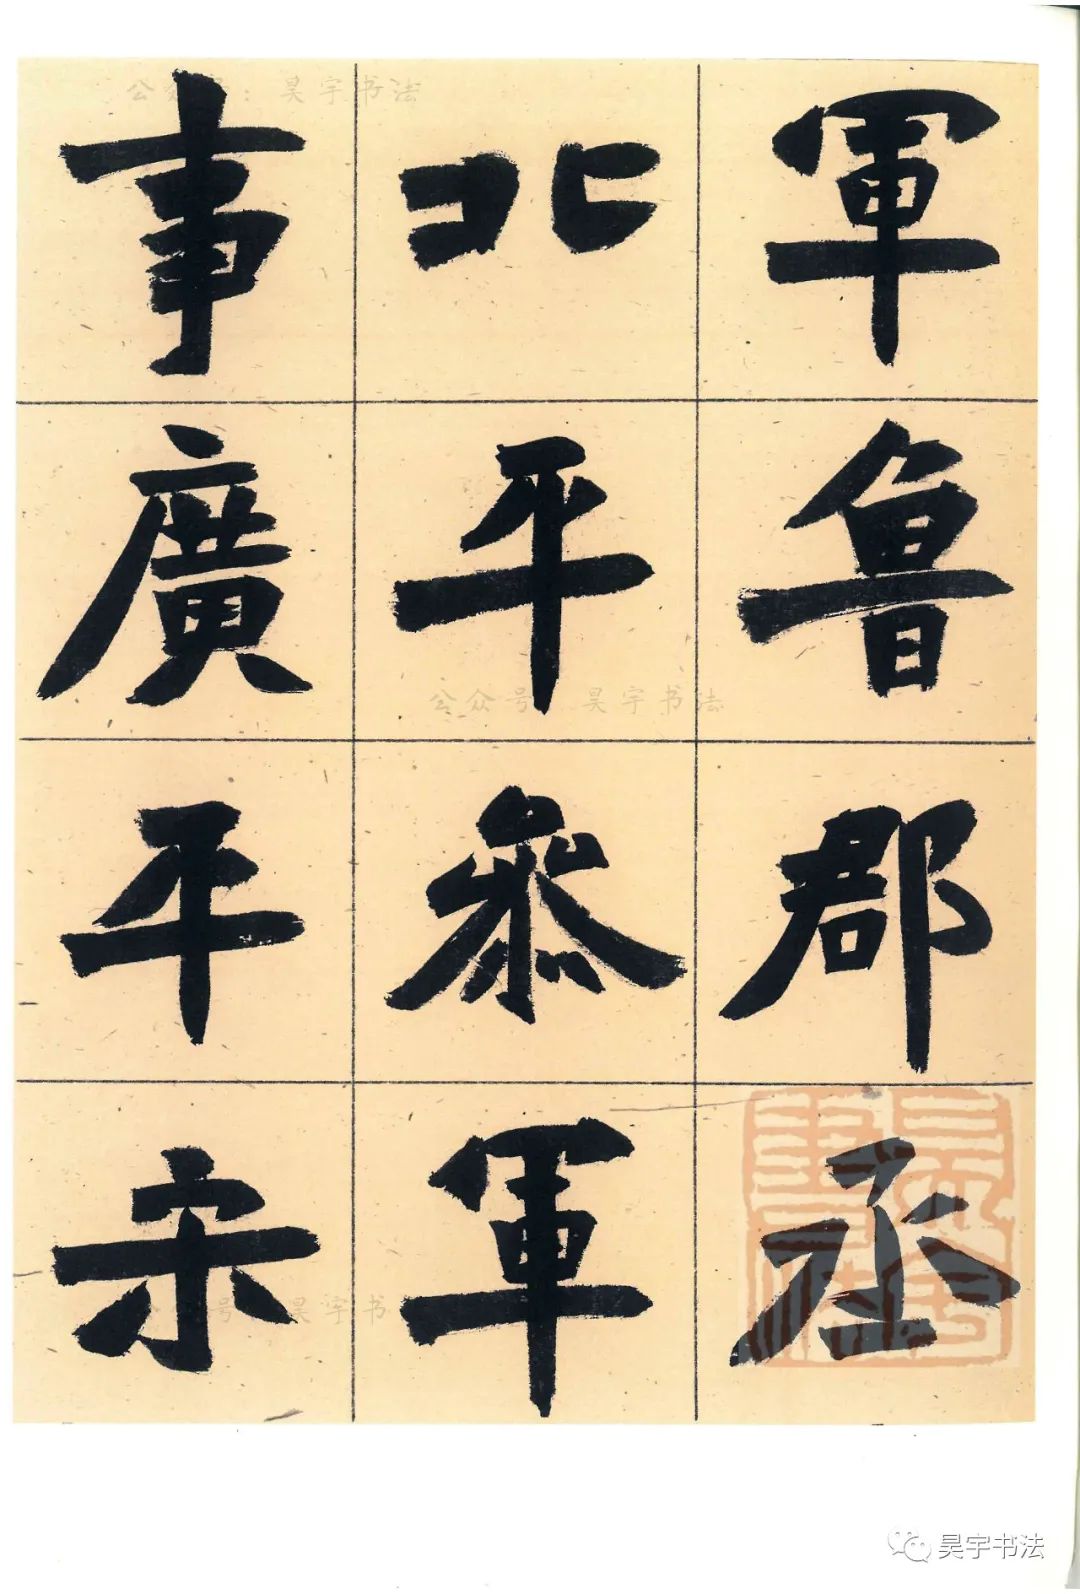 軍魯郡丞
北平叅軍
事廣平宋
公众号：昊宇书法
公众号 昊宇书法
公众号 昊宇书
昊宇书法
昊宇书法